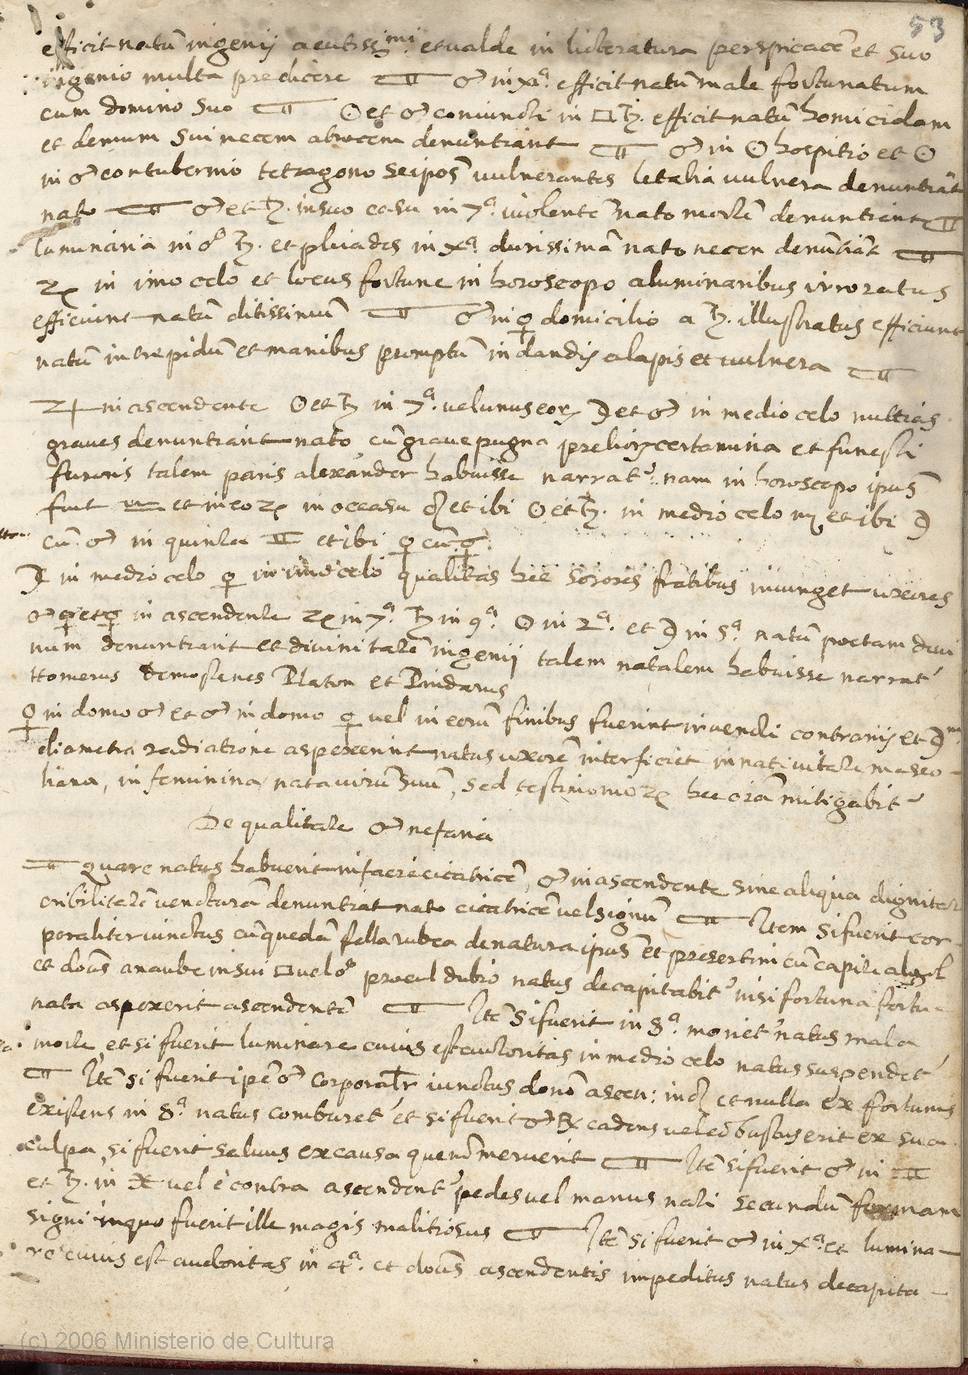 53
efficit natū ingenij acutissimi et valde in litteratura perspicacē et suo
ingenio multa predicere ♂ in xᵃ efficit natū male fortunatum
cum domino suo ☉ et ♂ coniuncti in □ ♄. efficit natū homicidam
et demum sui necem atrocem denuntiant ♂ in ☉ hospitio et ☉
in ♂ contubernio tetragono seipos̄ vulnerantes letalia vulnera denuntiāt
nato ♂ et ♄. in suo casu in 7ᵃ. violentē nato mortē denuntiant
luminaria in ☍ ♄. et pliades in xᵃ durissimā nato necen denūtiāt
♃ in imo celo et locus fortune in horoscopo a luminaribus irroratus
efficiunt natū ditissimū ♂ in ♀ domicilio a ♄. illustratus efficiunt
natū intrepidū et manibus promptū in dandis alapis et vulnera
♃ in ascendente ☉ et ♄ in 7ᵃ. vel unus eoꝝ ☽ et ♂ in medio celo
graves denuntiant nato cū grave pugna certamina et funesti
furoris talem paris alexander habuisse narratʳ. nam in horoscopo ipius
fuit ♒ et in eo ♃ in occasu ♌ et ibi ☉ et ♄. in medio celo ♏ et ibi ☽
cū ♂ in quinta ♊ et ibi ♀ cū ☿.
☽ in medio celo ♀ in imo celo qualitas hec sorores fratibus iniunget uxores
♂ ♀ et ☿ in ascendente ♃ in 7ᵃ ♄ in 9ᵃ. ☉ in 2ᵃ. et ☽ in 5ᵃ natū poetam divi
num denuntiant et divinitatē ingenij talem natalem habuisse narratʳ
Homerus Demostenes Platon et Pindarus
♀ in domo ♂ et ♂ in domo ♀ vel in eorū finibus fuerint inventi contrarijs et ☽
diametra radiatione aspexerint natus uxorē interficiet in nativitate mascu-
lina, in feminina nata virū suū, sed testimonio ♃ hec oīa mitigabit
De qualitate ♂ nefaria
quare natus habuerit in facie cicatricē, ♂ in ascendente sine aliqua dignitate
oribilitatē venturā denuntiat nato cicatricē vel signū Item si fuerit cor-
poraliter iunctus cū quedā stella rubea de natura ipius et presertim cū capite algol
et doūs anaube in sui □ vel ☍ procul dubio natus decapitabitʳ nisi fortuna fortu-
nata aspexerit ascendentē Itē si fuerit in 8ᵃ. morietʳ natus mala
morte, et si fuerit luminare cuius est autoritas in medio celo natus suspendetʳ
Itē si fuerit ipē ♂ corporalʳ iunctus donō ascen: in ♌ et nulla ex fortunis
existens in 8ᵃ. natus comburetʳ et si fuerit ♂ ℞ cadens vel cōbustus erit ex sua
culpa, si fuerit salvus ex causa quenō meruerit Itē si fuerit ♂ in ♊
et ♄. in ♓ vel e contra ascendentʳ pedes vel manus nati secundū formam
signi inquo fuerit ille magis malitiosus Itē si fuerit ♂ in xᵃ. et lumina-
re cuius est auctoritas in 4ᵃ. et doūs ascendentis impeditus natus decapita-
(c) 2006 Ministerio de Cultura